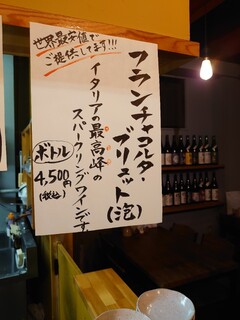 世界最安値で
ご提供してます!!!
フランチャコルタ・
ブリュット(泡)
イタリアの最高峰の
スパークリングワインです
ボトル
4,500円
(税込)